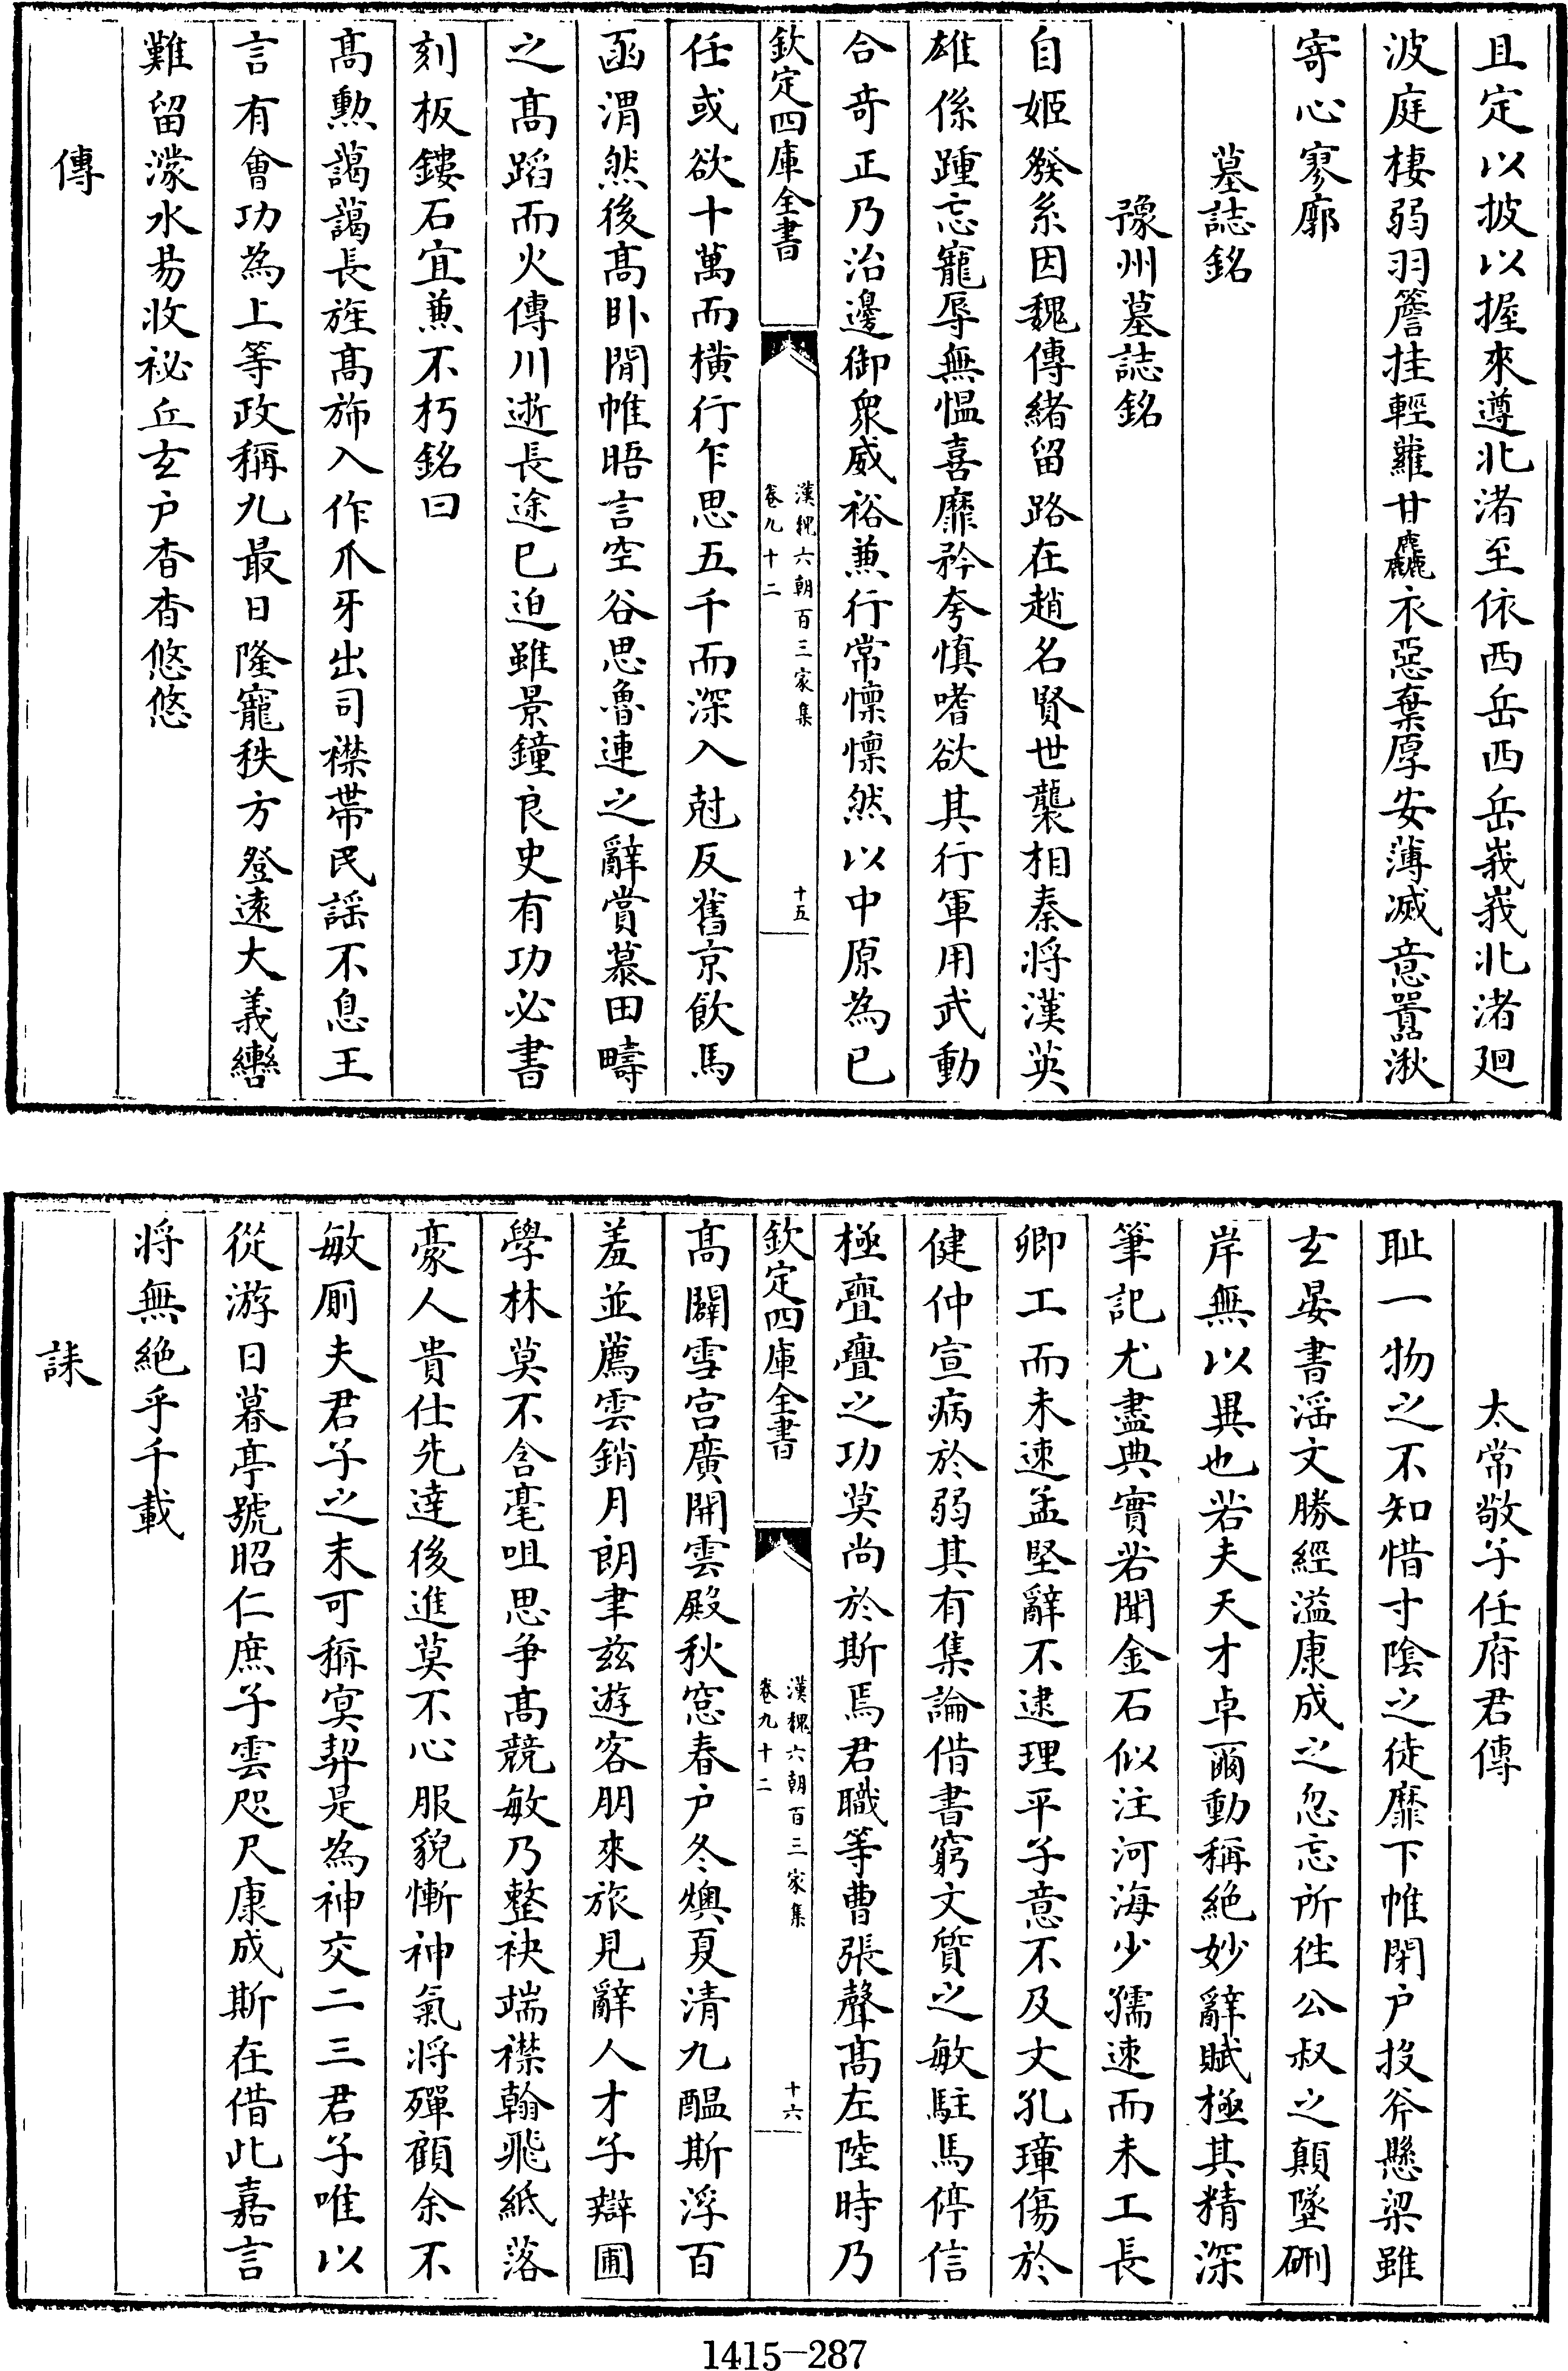 且定以披以握來遵北渚至依西岳西岳峩峩北渚廻
波庭棲弱羽簷挂輕蘿甘麤衣惡棄厚安薄滅意囂湫
寄心寥廓
墓誌銘
豫州墓誌銘
自姬發系因魏傳緒留路在趙名賢世襲相秦將漢英
雄係踵忘寵辱無愠喜靡矜夸慎嗜欲其行軍用武動
合奇正乃治邊御衆威裕兼行常懍懍然以中原為已
欽定四庫全書
漢魏六朝百三家集
卷九十二
十五
任或欲十萬而橫行乍思五千而深入尅反舊京飲馬
函渭然後髙卧閒帷晤言空谷思魯連之辭賞慕田疇
之髙蹈而火傳川逝長途已迫雖景鐘良史有功必書
刻板鏤石宜兼不朽銘曰
髙勲藹藹長旌髙斾入作爪牙出司襟帶民謡不息王
言有㑹功為上等政稱九最日隆寵秩方登遠大義轡
難留濛水易收祕丘玄户杳杳悠悠
傳
太常敬子任府君傳
耻一物之不知惜寸陰之徒靡下帷閉户投斧懸梁雖
玄晏書滛文勝經溢康成之忽忘所徃公叔之顛墜硎
岸無以異也若夫天才卓爾動稱絶妙辭賦極其精深
筆記尤盡典實若聞金石似注河海少孺速而未工長
卿工而未速孟堅辭不逮理平子意不及文孔璋傷於
健仲宣病於弱其有集論借書窮文質之敏駐馬停信
極亹亹之功莫尚於斯焉君職等曹張聲髙左陸時乃
欽定四庫全書
漢魏六朝百三家集
卷九十二
十六
髙闢雪宫廣開雲殿秋窓春户冬燠夏清九醖斯浮百
羞並薦雲銷月朗聿兹遊客朋來旅見辭人才子辯圃
學林莫不含毫咀思争髙競敏乃整袂端襟翰飛紙落
豪人貴仕先達後進莫不心服貌慚神氣將殫顧余不
敏厠夫君子之末可稱㝠契是為神交二三君子唯以
從游日暮亭號昭仁庶子雲咫尺康成斯在借此嘉言
將無絶乎千載
誄
1415-287